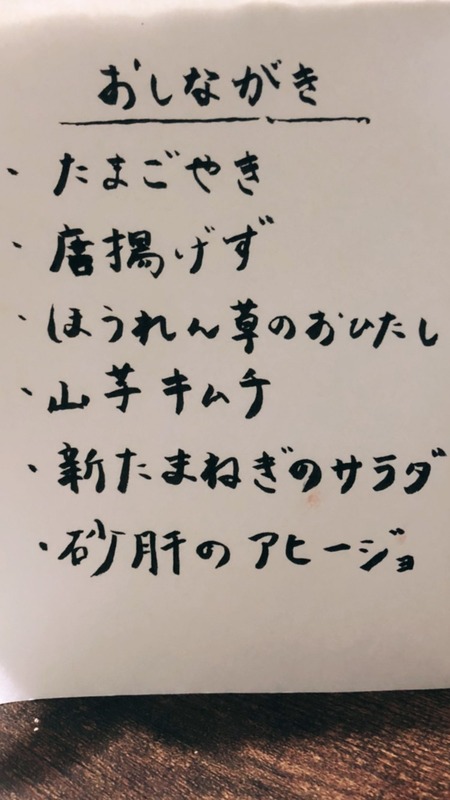 おしながき
・たまごやき
・唐揚げず
・ほうれん草のおひたし
・山芋キムチ
・新たまねぎのサラダ
・砂肝のアヒージョ